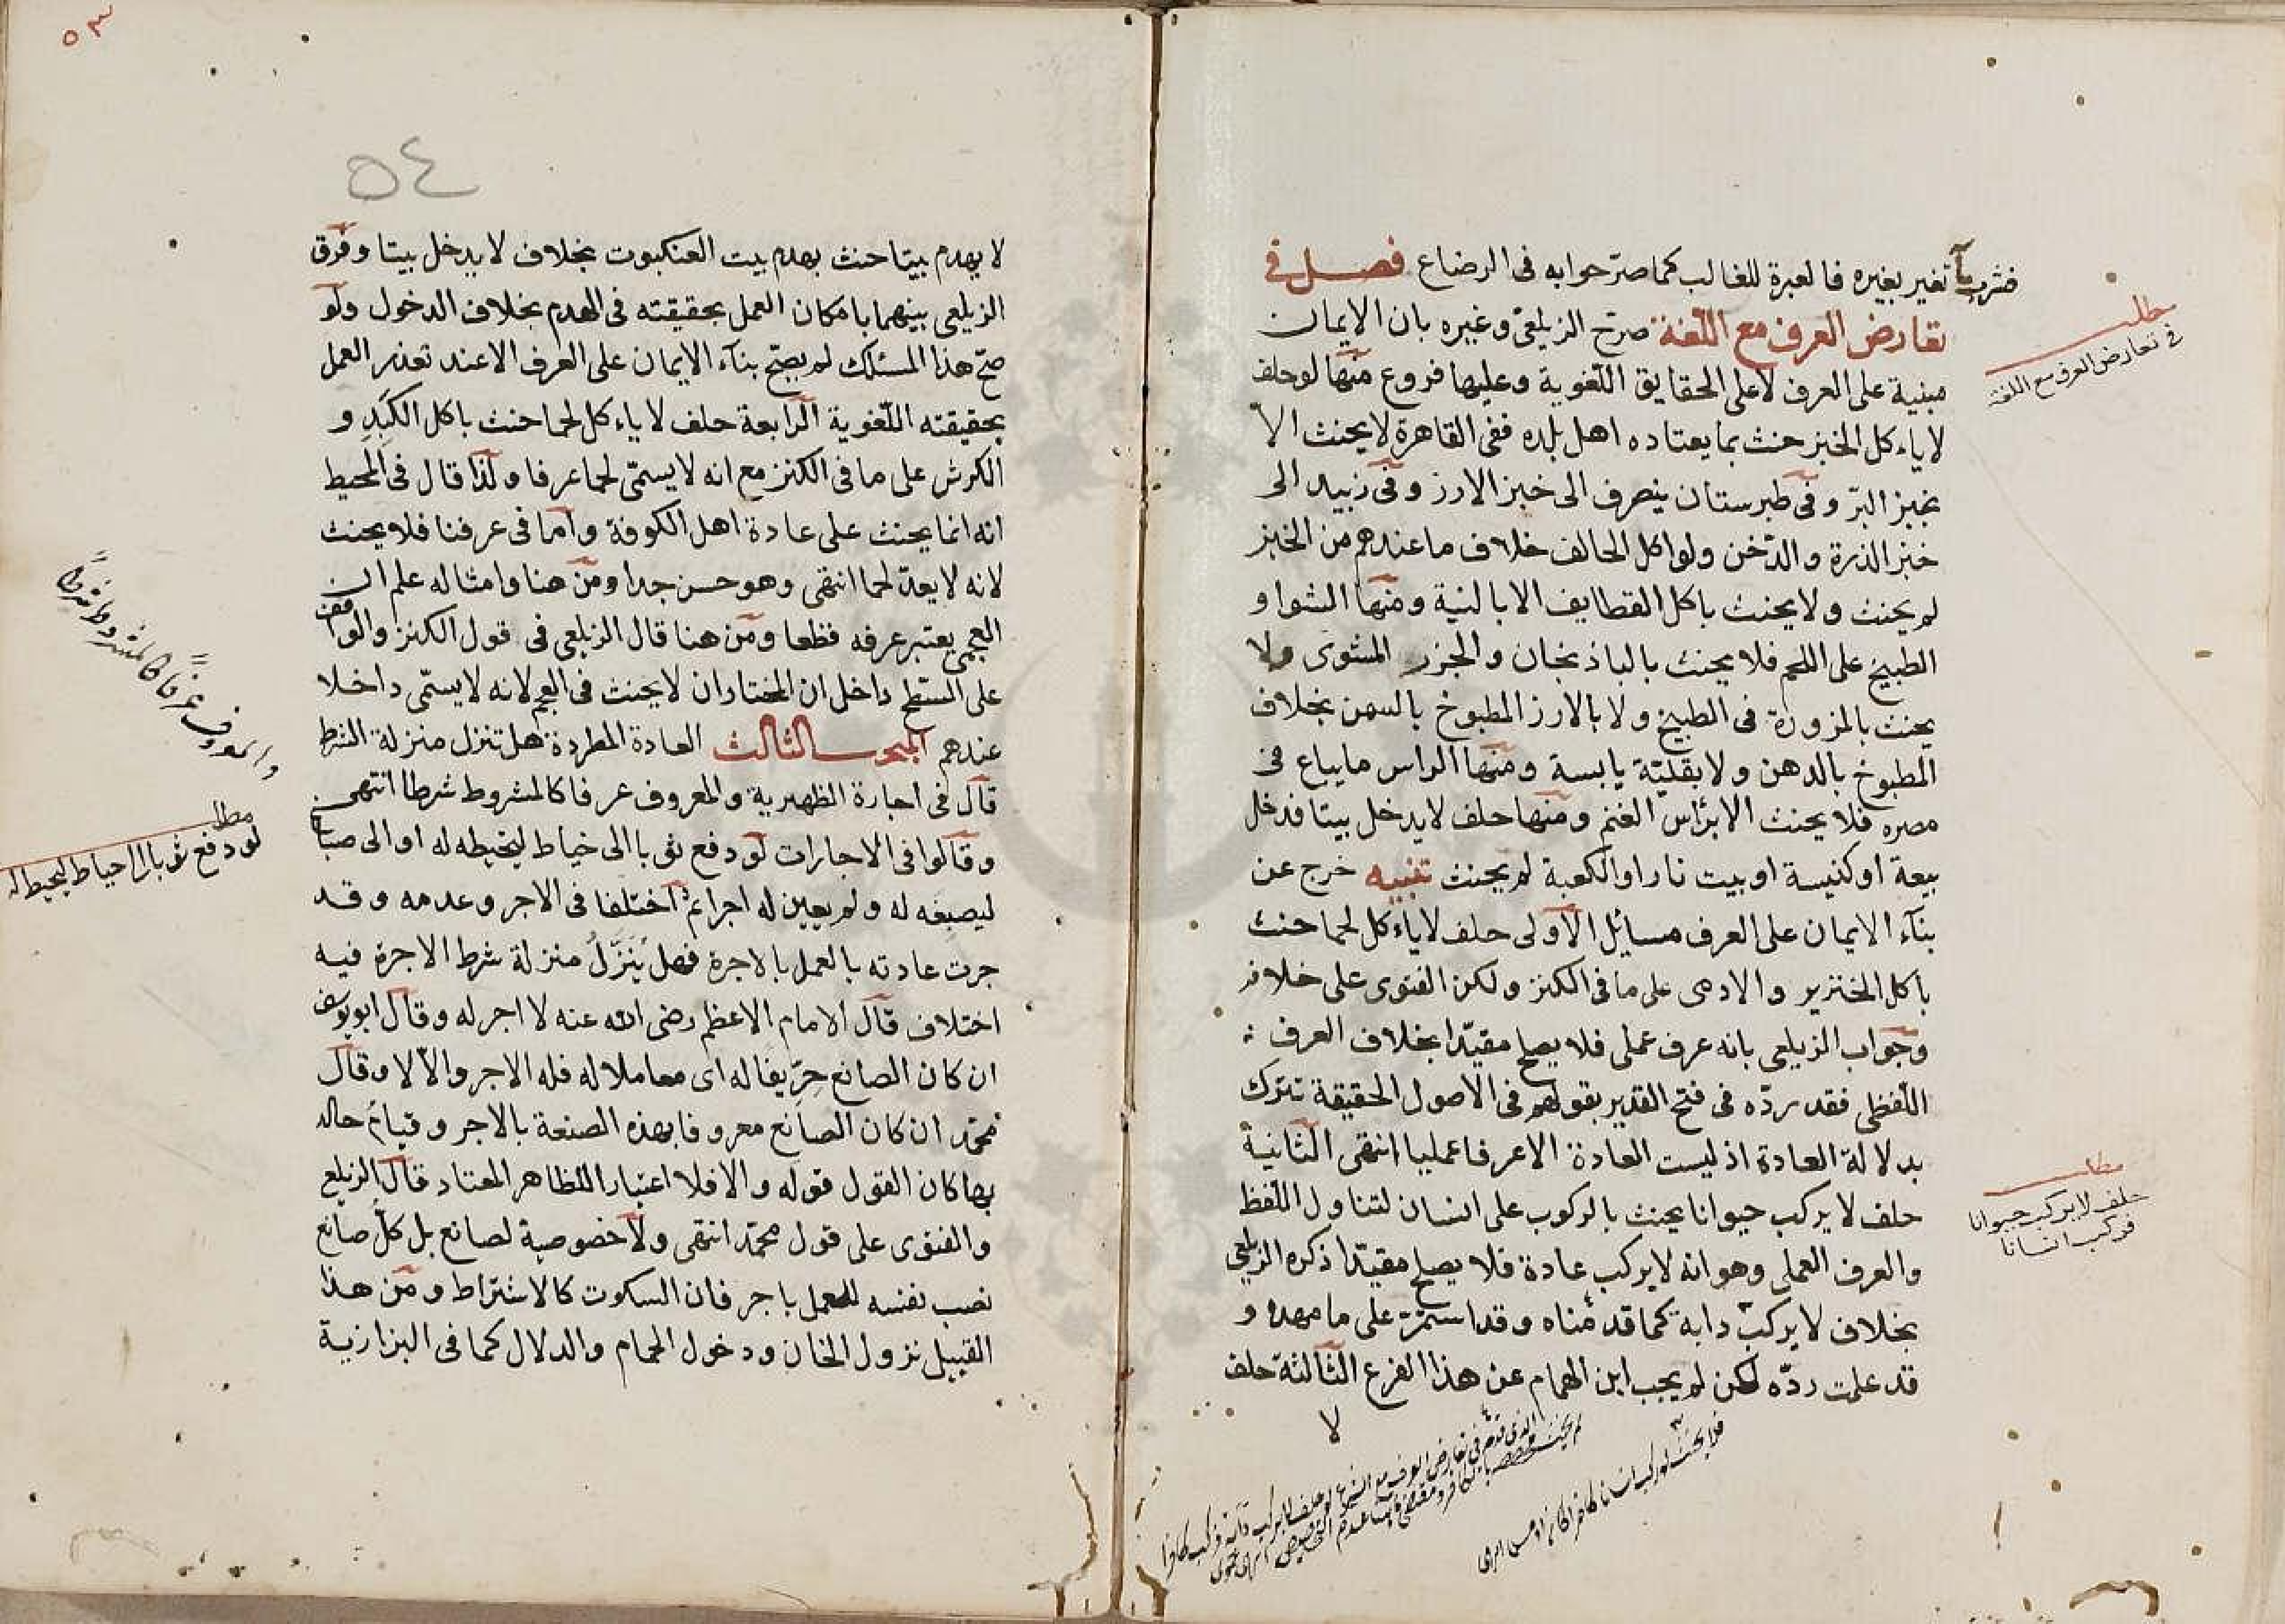 فشرب ماء تغير بغيره فالعبرة للغالب كما صرّحوا به فى الرضاع فصل فى
تعارض العرف مع اللّغة صرّح الزيلعىّ وغيره بان الايمان
مبنية على العرف لا على الحقايق اللّغوية وعليها فروع منها لو حلف
لا ياءكل الخبز حنث بما يعتاده اهل بلده ففى القاهرة لا يحنث الا
بخبز البرّ وفى طبرستان ينصرف الى خبز الارز وفى زبيد الى
خبز الذرة والدّخن ولو اكل الحالف خلاف ما عندهم من الخبز
لم يحنث ولا يحنث باكل القطايف الا بالنية ومنها الشوا و
الطبيخ على اللحم فلا يحنث بالباذنجان والجزر المشوى ولا
يحنث بالمزورة فى الطبيخ ولا بالارز المطبوخ بالسمن بخلاف
المطبوخ بالدهن ولا بقليّة يابسة ومنها الراس ما يباع فى
مصره فلا يحنث الا برٔاس الغنم ومنها حلف لا يدخل بيتا فدخل
بيعة او كنيسة او بيت نار او الكعبة لم يحنث تنبيه خرج عن
بنآء الايمان على العرف مسائل الآولى حلف لا ياءكل لحما حنث
باكل الخنزير والادمى على ما فى الكنز ولكن الفتوى على خلافه
وجواب الزيلعى بانه عرف عملى فلا يصلح مقيّدا بخلاف العرف
اللّفظى فقد ردّه فى فتح القدير بقولهم فى الاصول الحقيقة تترك
بدلالة العادة اذ ليست العادة الا عرفا عمليا انتهى الثانية
حلف لا يركب حيوانا يحنث بالركوب على انسان لتناول اللّفظ
والعرف العملى وهو انه لا يركب عادة فلا يصلح مقيّدا ذكره الزيلعى
بخلاف لا يركب دابة كما قدمناه وقد استمرّ على ما مهده و
قد علمت ردّه لكن لم يجب ابن الهمام عن هذا الفرع الثالثة حلف
لا
مطلب
فى تعارض العرف مع اللغة
مطلب
حلف لا يركب حيوانا
فركب انسانا
٥٣
٥٤
لا يهدم بيتا حنث بهدم بيت العنكبوت بخلاف لا يدخل بيتا وفرّق
الزيلعى بينهما بامكان العمل بحقيقته فى الهدم بخلاف الدخول ولو
صحّ هذا المسلك لم يصحّ بنآء الايمان على العرف الا عند تعذر العمل
بحقيقته اللّغوية الرّابعة حلف لا ياءكل لحما حنث باكل الكبد و
الكرش على ما فى الكنز مع انه لا يسمّى لحما عرفا ولذا قال فى المحيط
انه انما يحنث على عادة اهل الكوفة واما فى عرفنا فلا يحنث
لانه لا يعدّ لحما انتهى وهو حسن جدا ومن هنا وامثاله علم ان
العجمى يعتبر عرفه قطعا ومن هنا قال الزيلعى فى قول الكنز والواقف
على السّطح داخل ان المختار ان لا يحنث فى العجم لانه لا يسمّى داخلا
عندهم المبحث الثالث العادة المطردة هل تنزل منزلة الشرط
قال فى اجارة الظهيرية والمعروف عرفا كالمشروط شرطا انتهى
وقالوا فى الاجارات لو دفع ثوبا الى خياط ليخيطه له او الى صباغ
ليصبغه له ولم يعين له اجرا ثم اختلفا فى الاجر وعدمه وقد
جرت عادته بالعمل بالاجرة فهل يُنزَّلُ منزلة شرط الاجرة فيه
اختلاف قال الامام الاعظم رضى الله عنه لا اجر له وقال ابو يوسف
ان كان الصانع حِرّيفًا له اى معاملا له فله الاجر والّا لا وقال
محمّد ان كان الصانع معروفا بهذه الصنعة بالاجر وقيامُ حاله
بها كان القول قوله والا فلا اعتبارا للظاهر المعتاد قال الزيلعى
والفتوى على قول محمّد انتهى ولا خصوصية لصانع بل كلّ صانع
نصب نفسه للعمل باجر فان السكوت كالاشتراط ومن هذا
القبيل نزول الخان ودخول الحمام والدلال كما فى البزازية
والمعروف عرفاً كالمشروط شرطاً
مطلب
لو دفع ثوبا الى خياط ليخيط له